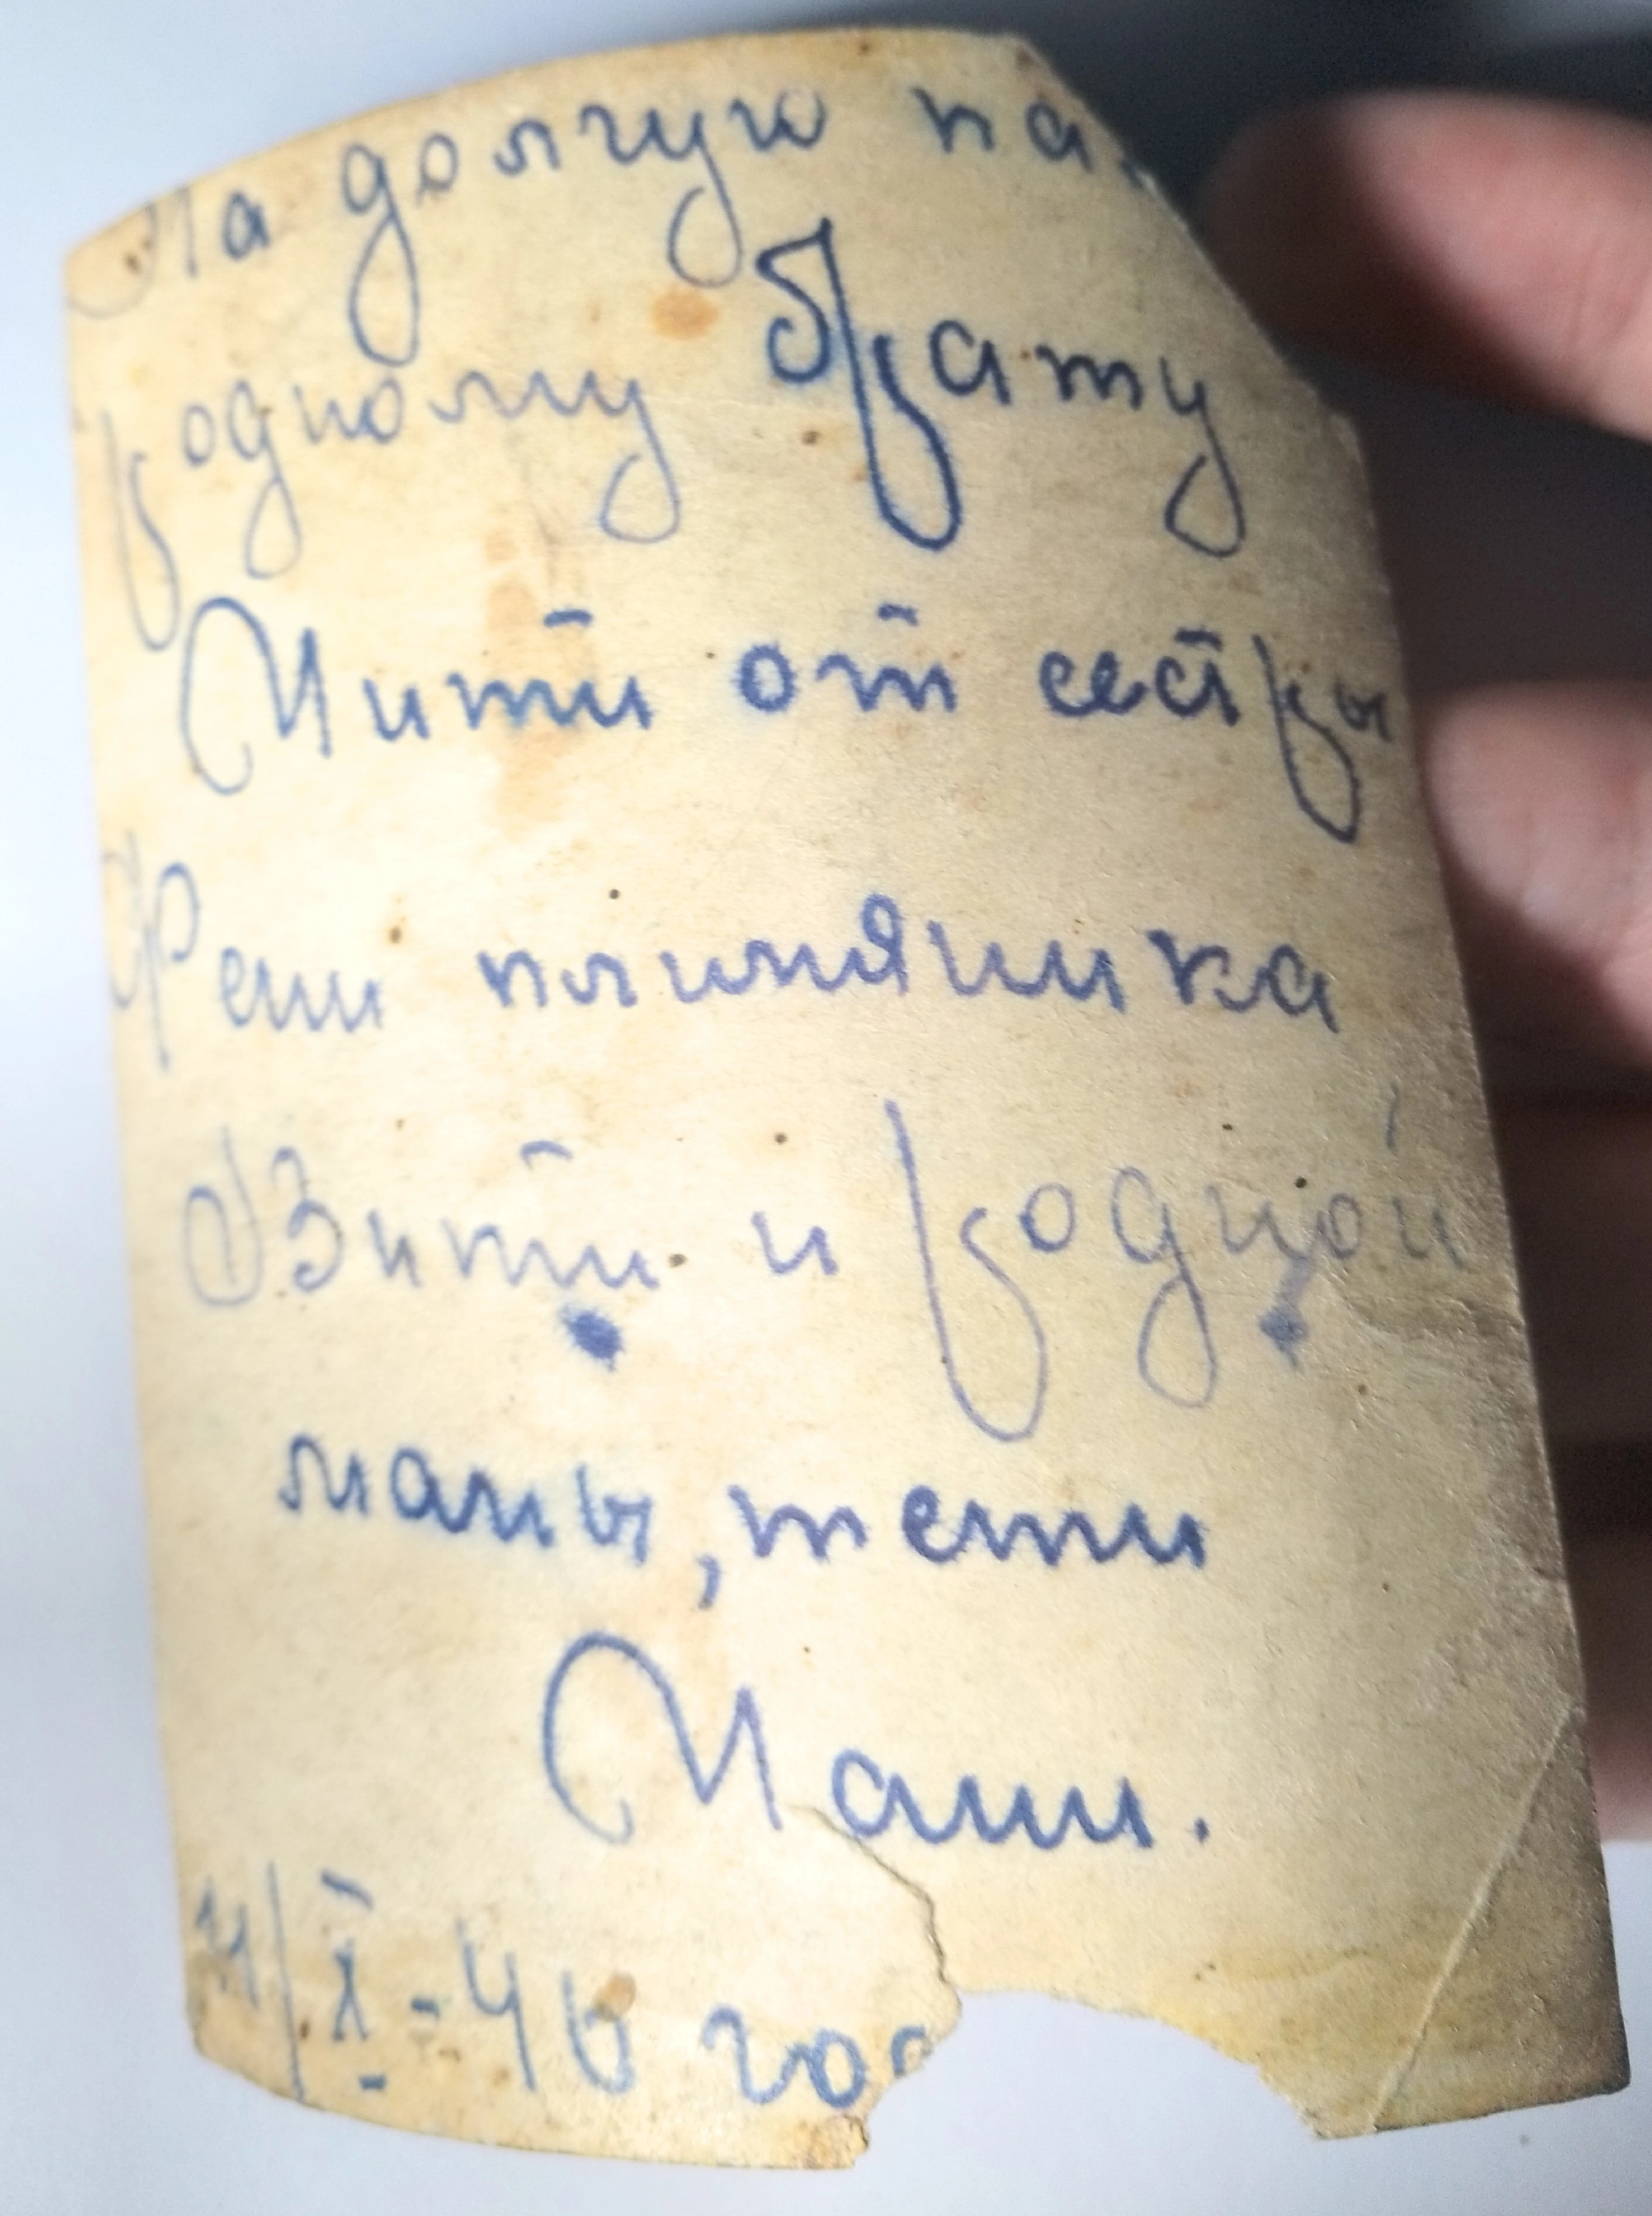 На долгую па
родному брату
Мити от сестры
Фени плимяшика
Вити и родной
мамы, тети
Маши.
11/X-46 год